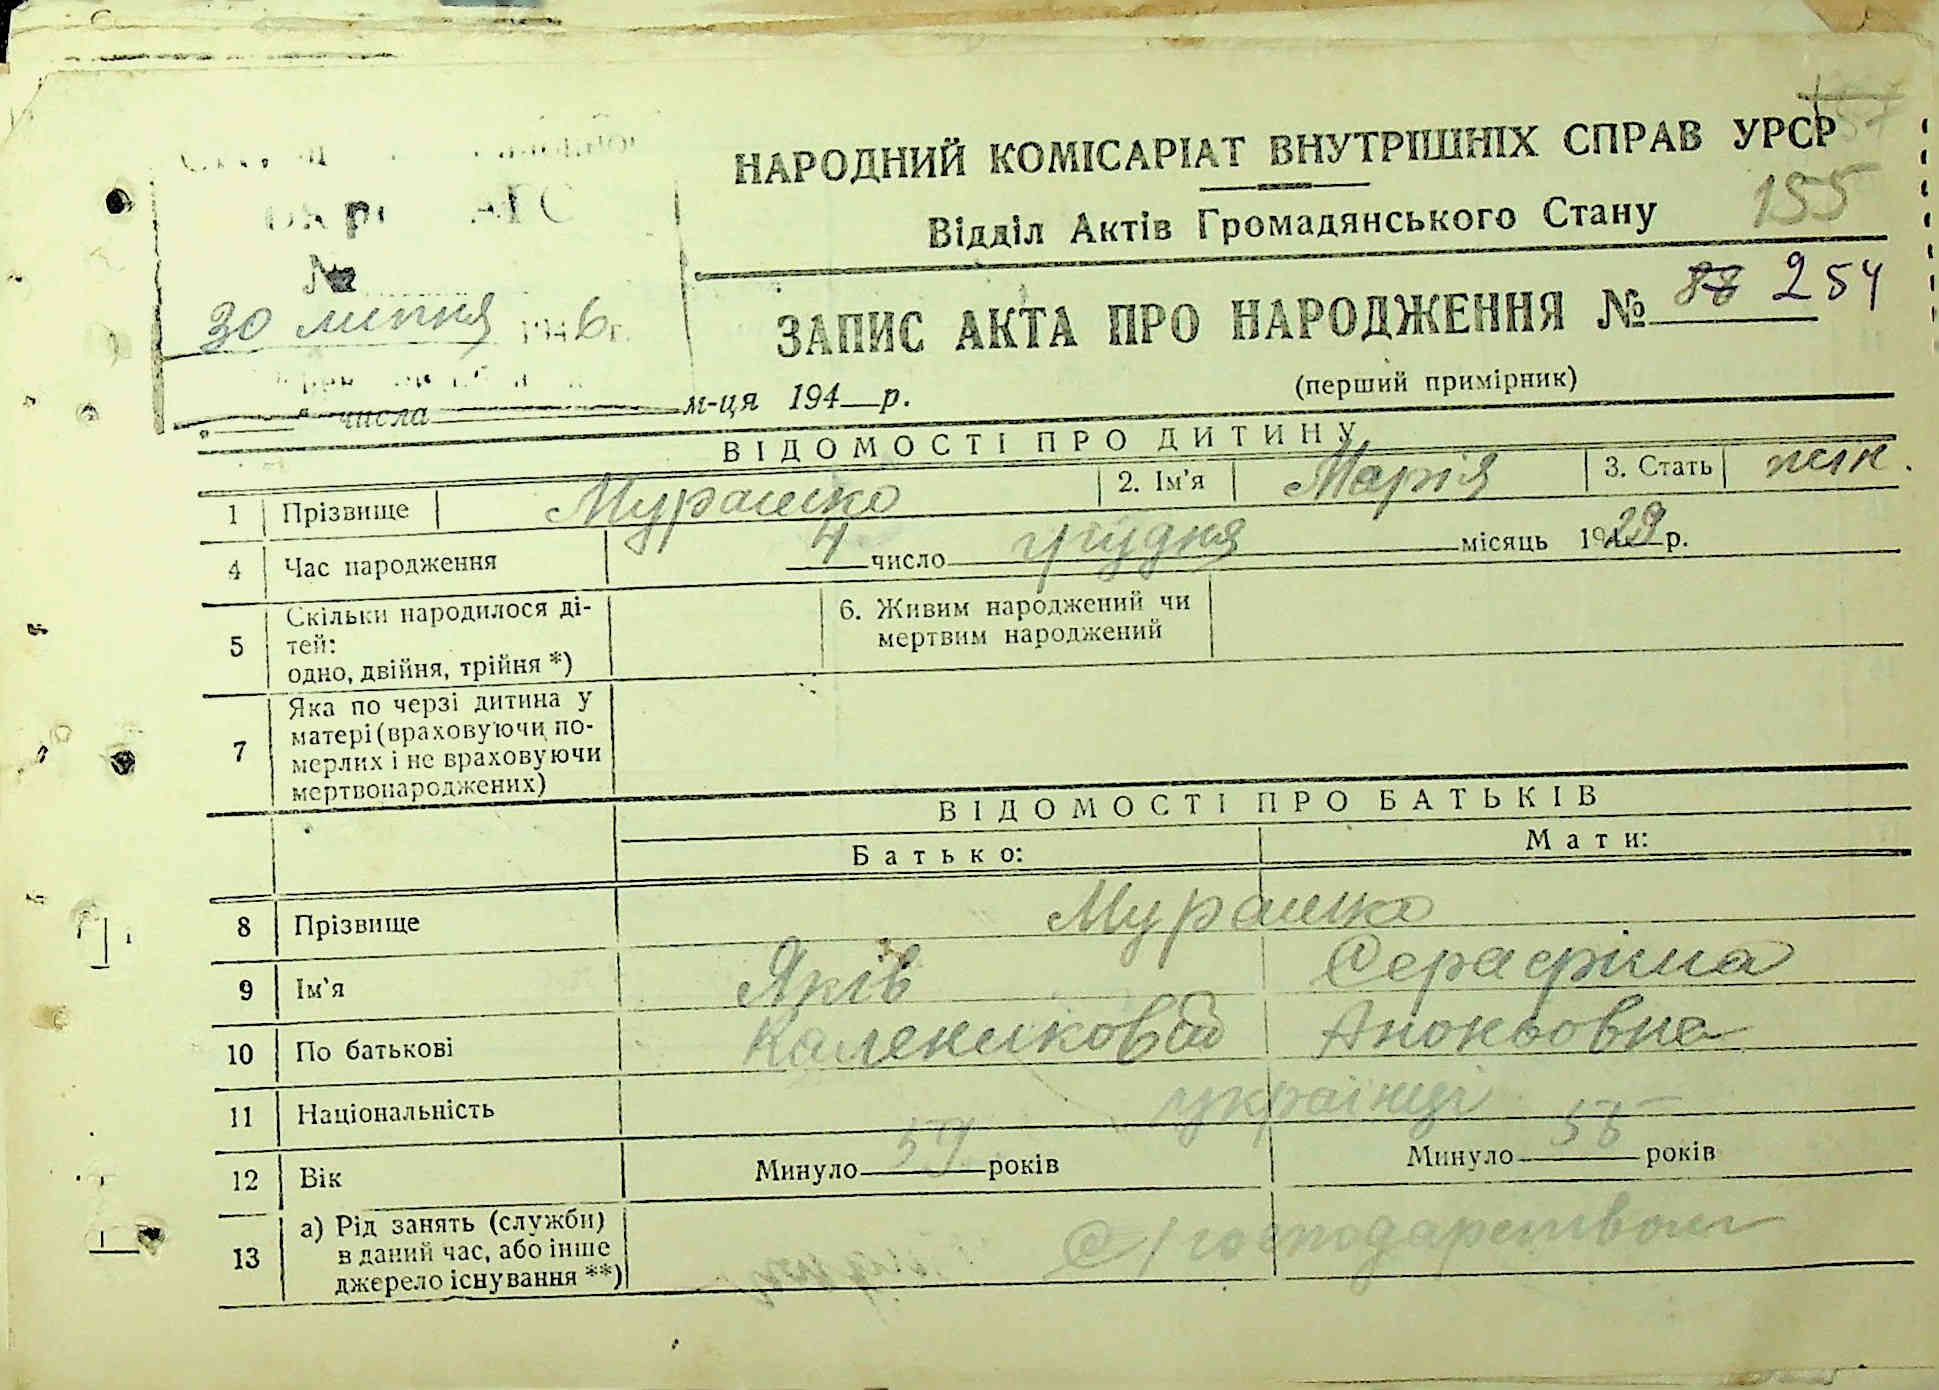 НАРОДНИЙ КОМІСАРІАТ ВНУТРІШНІХ СПРАВ УРСР
155
Відділ Актів Громадянського Стану
№
88 254
ЗАПИС АКТА ПРО НАРОДЖЕННЯ №
30 липня 1946 г.
(перший примірник)
" числа м-ця 194 р.
ВІДОМОСТІ ПРО ДИТИНУ
1 Прізвище Мурашко 2. Ім'я Марія 3. Стать
4 Час народження 4 число грудня місяць 1929 р.
5 Скільки народилося ді-
тей:
одно, двійня, трійня *)
6. Живим народжений чи
мертвим народжений
7 Яка по черзі дитина у
матері (враховуючи по-
мерлих і не враховуючи
мертвонароджених)
ВІДОМОСТІ ПРО БАТЬКІВ
Батько: Мати:
8 Прізвище Мурашко
9 Ім'я Яків Серафіма
10 По батькові
11 Національність українці
12 Вік Минуло років Минуло років
13 а) Рід занять (служби)
в даний час, або інше
джерело існування **)
С/господарством